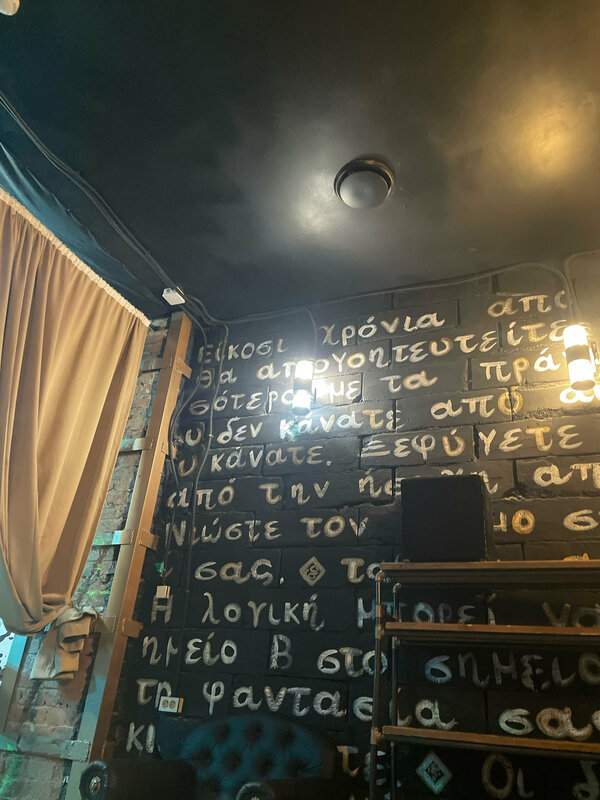 Είκοσι χρόνια από
θα απογοητευτείτε
σότερο με τα πρά
δεν κάνατε από
κάνατε. Ξεφύγετε
από την
Νιώστε τον σ
σας. το
Η λογική μπορεί να
ημείο Β στο σημείο
φαντασία σας
κι τε Οι